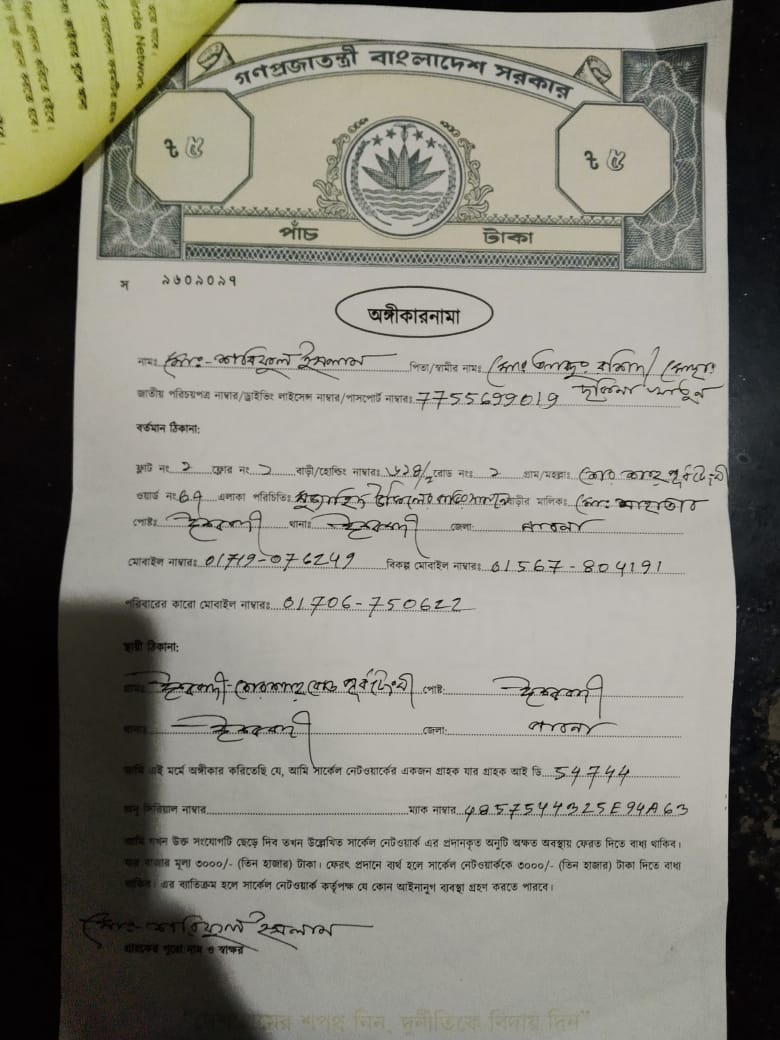 Circle Network
গণপ্রজাতন্ত্রী বাংলাদেশ সরকার
৳ ৫ ৳ ৫
পাঁচ টাকা
স ৯৬০৯০৯৭
অঙ্গীকারনামা
নামঃ মোঃ-শরিফুল ইসলাম পিতা/স্বামীর নামঃ মোঃ আব্দুঃ রশিদ/ মোছাঃ
জাতীয় পরিচয়পত্র নাম্বার/ড্রাইভিং লাইসেন্স নাম্বার/পাসপোর্ট নাম্বারঃ 7755699019 খাতুন
বর্তমান ঠিকানা:
ফ্লাট নং ২ ফ্লোর নং ১ বাড়ী/হোল্ডিং নাম্বারঃ রোড নংঃ ২ গ্রাম/মহল্লাঃ
ওয়ার্ড নং এলাকা পরিচিতিঃ বাড়ীর মালিকঃ মোঃ
পোষ্টঃ ঈশ্বরদী থানাঃ ঈশ্বরদী জেলা: পাবনা
মোবাইল নাম্বারঃ 01719-076249 বিকল্প মোবাইল নাম্বারঃ 01567-804191
পরিবারের কারো মোবাইল নাম্বারঃ 01706-750622
স্থায়ী ঠিকানা:
গ্রামঃ ঈশ্বরদী পোষ্ট: ঈশ্বরদী
থানাঃ ঈশ্বরদী জেলা: পাবনা
আমি এই মর্মে অঙ্গীকার করিতেছি যে, আমি সার্কেল নেটওয়ার্কের একজন গ্রাহক যার গ্রাহক আই ডি 54744
অনু সিরিয়াল নাম্বার ম্যাক নাম্বার 4857544325E94A63
আমি যখন উক্ত সংযোগটি ছেড়ে দিব তখন উল্লেখিত সার্কেল নেটওয়ার্ক এর প্রদানকৃত অনুটি অক্ষত অবস্থায় ফেরত দিতে বাধ্য থাকিব।
যার বাজার মূল্য ৩০০০/- (তিন হাজার) টাকা। ফেরৎ প্রদানে ব্যর্থ হলে সার্কেল নেটওয়ার্ককে ৩০০০/- (তিন হাজার) টাকা দিতে বাধ্য
থাকিব। এর ব্যতিক্রম হলে সার্কেল নেটওয়ার্ক কর্তৃপক্ষ যে কোন আইনানুগ ব্যবস্থা গ্রহণ করতে পারবে।
মোঃ-শরিফুল ইসলাম
গ্রাহকের পুরো নাম ও স্বাক্ষর
"দেশপ্রেমের শপথ নিন, দুর্নীতিকে বিদায় দিন"